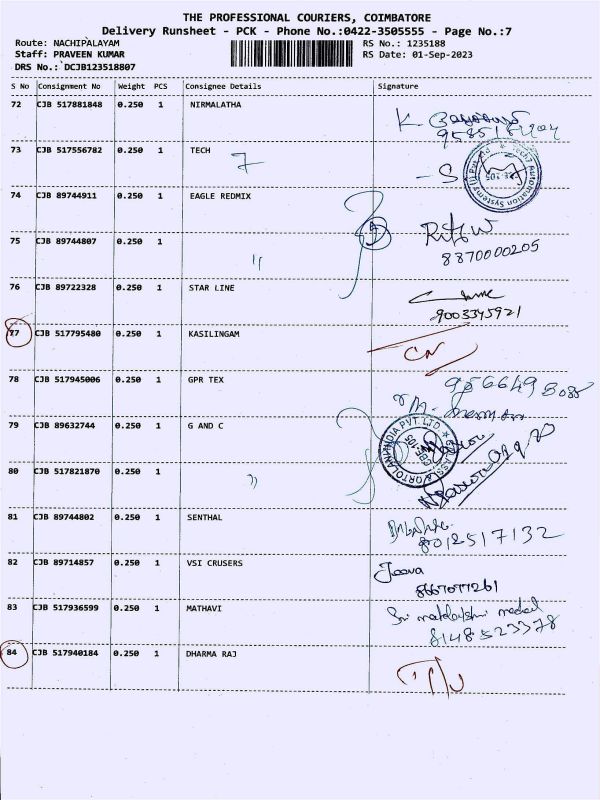 THE PROFESSIONAL COURIERS, COIMBATORE
Delivery Runsheet - PCK - Phone No.:0422-3505555 - Page No.:7
Route: NACHIPALAYAM RS No.: 1235188
Staff: PRAVEEN KUMAR RS Date: 01-Sep-2023
DRS No.: DCJB123518807
S No Consignment No Weight PCS Consignee Details Signature
72 CJB 517881848 0.250 1 NIRMALATHA
73 CJB 517556782 0.250 1 TECH 7
74 CJB 89744911 0.250 1 EAGLE REDMIX
75 CJB 89744807 0.250 1 "
8870000205
76 CJB 89722328 0.250 1 STAR LINE
9003345921
77 CJB 517795480 0.250 1 KASILINGAM
CN
78 CJB 517945006 0.250 1 GPR TEX
79 CJB 89632744 0.250 1 G AND C
80 CJB 517821870 0.250 1 "
81 CJB 89744802 0.250 1 SENTHAL
8012517132
82 CJB 89714857 0.250 1 VSI CRUSERS Jeeva
8667077261
83 CJB 517936599 0.250 1 MATHAVI
8148523378
84 CJB 517940184 0.250 1 DHARMA RAJ